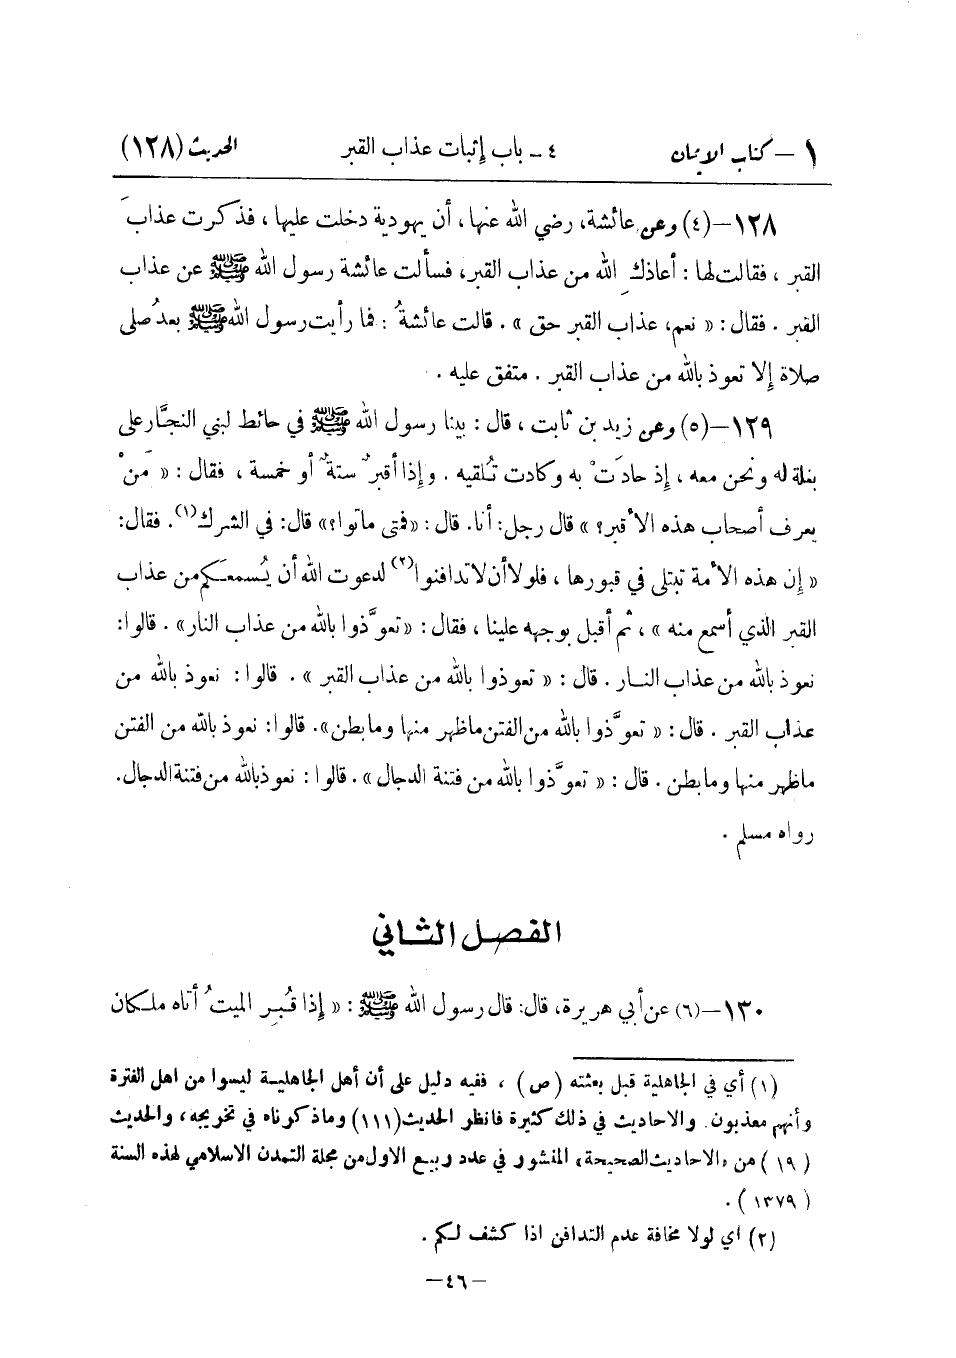 ١ – كتاب الايمان ٤ – باب إثبات عذاب القبر الحديث (١٢٨)
١٢٨–(٤) وعن عائشة، رضي الله عنها، أن يهودية دخلت عليها، فذكرت عذابَ
القبر، فقالت لها: أعاذكِ الله من عذاب القبر، فسألت عائشة رسول الله ﷺ عن عذاب
القبر. فقال: « نعم، عذاب القبر حق ». قالت عائشةُ: فما رأيت رسول الله ﷺ بعدُ صلى
صلاة إلا تعوذ بالله من عذاب القبر. متفق عليه.
١٢٩–(٥) وعن زيد بن ثابت، قال: بينا رسول الله ﷺ في حائط لبني النجَّار على
بغلة له ونحن معه، إذ حادَتْ به وكادت تُلقيه. وإذا أقبرٌ ستةٌ أو خمسة، فقال: « مَنْ
يعرف أصحاب هذه الأقبر؟ » قال رجل: أنا. قال: «فمتى ماتوا؟» قال: في الشرك(١). فقال:
« إن هذه الأمة تبتلى في قبورها، فلولا أن لا تدافنوا(٢) لدعوت الله أن يُسمعَكم من عذاب
القبر الذي أسمع منه »، ثم أقبل بوجهه علينا، فقال: «تعوَّذوا بالله من عذاب النار». قالوا:
نعوذ بالله من عذاب النار. قال: « تعوذوا بالله من عذاب القبر ». قالوا: نعوذ بالله من
عذاب القبر. قال: « تعوَّذوا بالله من الفتن ما ظهر منها وما بطن». قالوا: نعوذ بالله من الفتن
ما ظهر منها وما بطن. قال: « تعوَّذوا بالله من فتنة الدجال ». قالوا: نعوذ بالله من فتنة الدجال.
رواه مسلم.
الفصل الثاني
١٣٠–(٦) عن أبي هريرة، قال: قال رسول الله ﷺ: « إذا قُبِر الميتُ أتاه ملكان
(١) أي في الجاهلية قبل بعثته (ص)، ففيه دليل على أن أهل الجاهلية ليسوا من اهل الفترة
وأنهم معذبون. والاحاديث في ذلك كثيرة فانظر الحديث (١١١) وما ذكرناه في تخريجه، والحديث
(١٩) من «الاحاديث الصحيحة» المنشور في عدد ربيع الاول من مجلة التمدن الاسلامي لهذه السنة
(١٣٧٩).
(٢) اي لولا مخافة عدم التدافن اذا كشف لكم.
–٤٦–